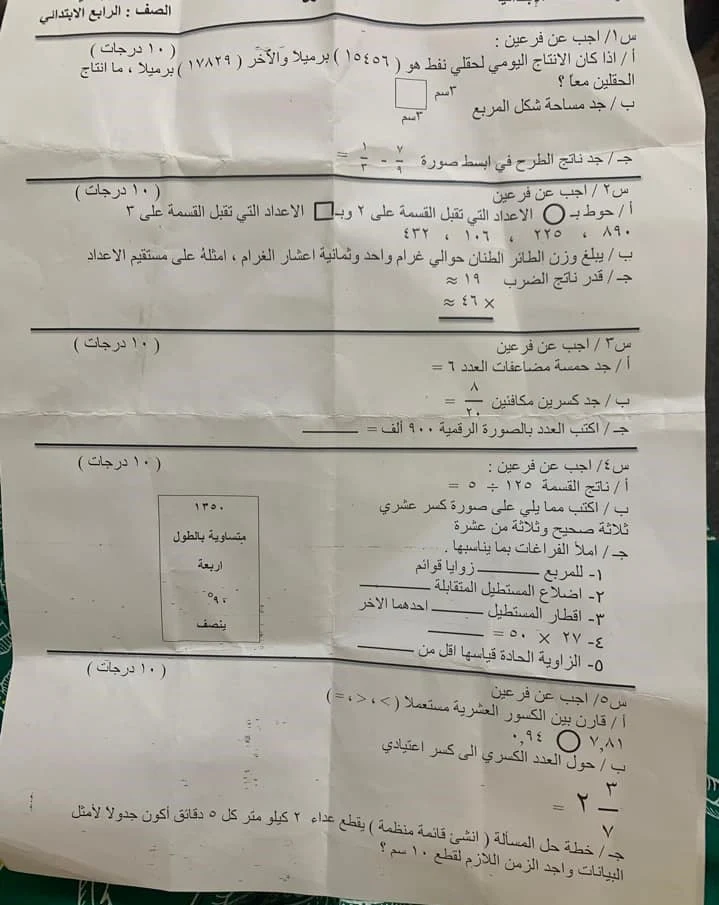 الصف : الرابع الابتدائي
س١/ اجب عن فرعين :
( ١٠ درجات )
أ / اذا كان الانتاج اليومي لحقلي نفط هو ( ١٥٤٥٦ ) برميلا والآخر ( ١٧٨٢٩ ) برميلا ، ما انتاج
الحقلين معاً ؟
٣سم
ب / جد مساحة شكل المربع
٣سم
جـ / جد ناتج الطرح في ابسط صورة ٧/٩ - ١/٣ =
س٢/ اجب عن فرعين
( ١٠ درجات )
أ / حوط بـ ○ الاعداد التي تقبل القسمة على ٢ وبـ □ الاعداد التي تقبل القسمة على ٣
٨٩٠ ، ٢٢٥ ، ١٠٦ ، ٤٣٢
ب / يبلغ وزن الطائر الطنان حوالي غرام واحد وثمانية اعشار الغرام ، امثلهُ على مستقيم الاعداد
جـ / قدر ناتج الضرب ١٩ ≈
× ٤٦ ≈
س٣ / اجب عن فرعين
( ١٠ درجات )
أ / جد خمسة مضاعفات العدد ٦ =
ب / جد كسرين مكافئين ٨/٢٠ =
جـ / اكتب العدد بالصورة الرقمية ٩٠٠ ألف = ______
س٤/ اجب عن فرعين :
( ١٠ درجات )
أ / ناتج القسمة ١٢٥ ÷ ٥ =
ب / اكتب مما يلي على صورة كسر عشري
ثلاثة صحيح وثلاثة من عشرة
جـ / املأ الفراغات بما يناسبها .
١- للمربع ______ زوايا قوائم
٢- اضلاع المستطيل المتقابلة ______
٣- اقطار المستطيل ______ احدهما الاخر
٤- ٢٧ × ٥٠ = ______
٥- الزاوية الحادة قياسها اقل من ______
١٣٥٠
متساوية بالطول
اربعة
٩٠°
ينصف
س٥/ اجب عن فرعين
( ١٠ درجات )
أ / قارن بين الكسور العشرية مستعملا ( > ، < ، = )
٧,٨١ ○ ٠,٩٤
ب / حول العدد الكسري الى كسر اعتيادي
٢ ٣/٧ =
جـ / خطة حل المسألة ( انشئ قائمة منظمة ) يقطع عداء ٢ كيلو متر كل ٥ دقائق أكون جدولاً لأمثل
البيانات واجد الزمن اللازم لقطع ١٠ سم ؟